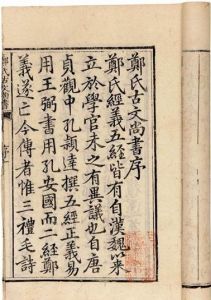 鄭氏古文尚書序
鄭氏經義五經皆有自漢魏以來
立於學官未之有異議也自唐
貞觀中孔穎達撰五經正義易
用王弼書用孔安國而二經鄭
義遂亡今傳者惟三禮毛詩
鄭氏古文尚書
序